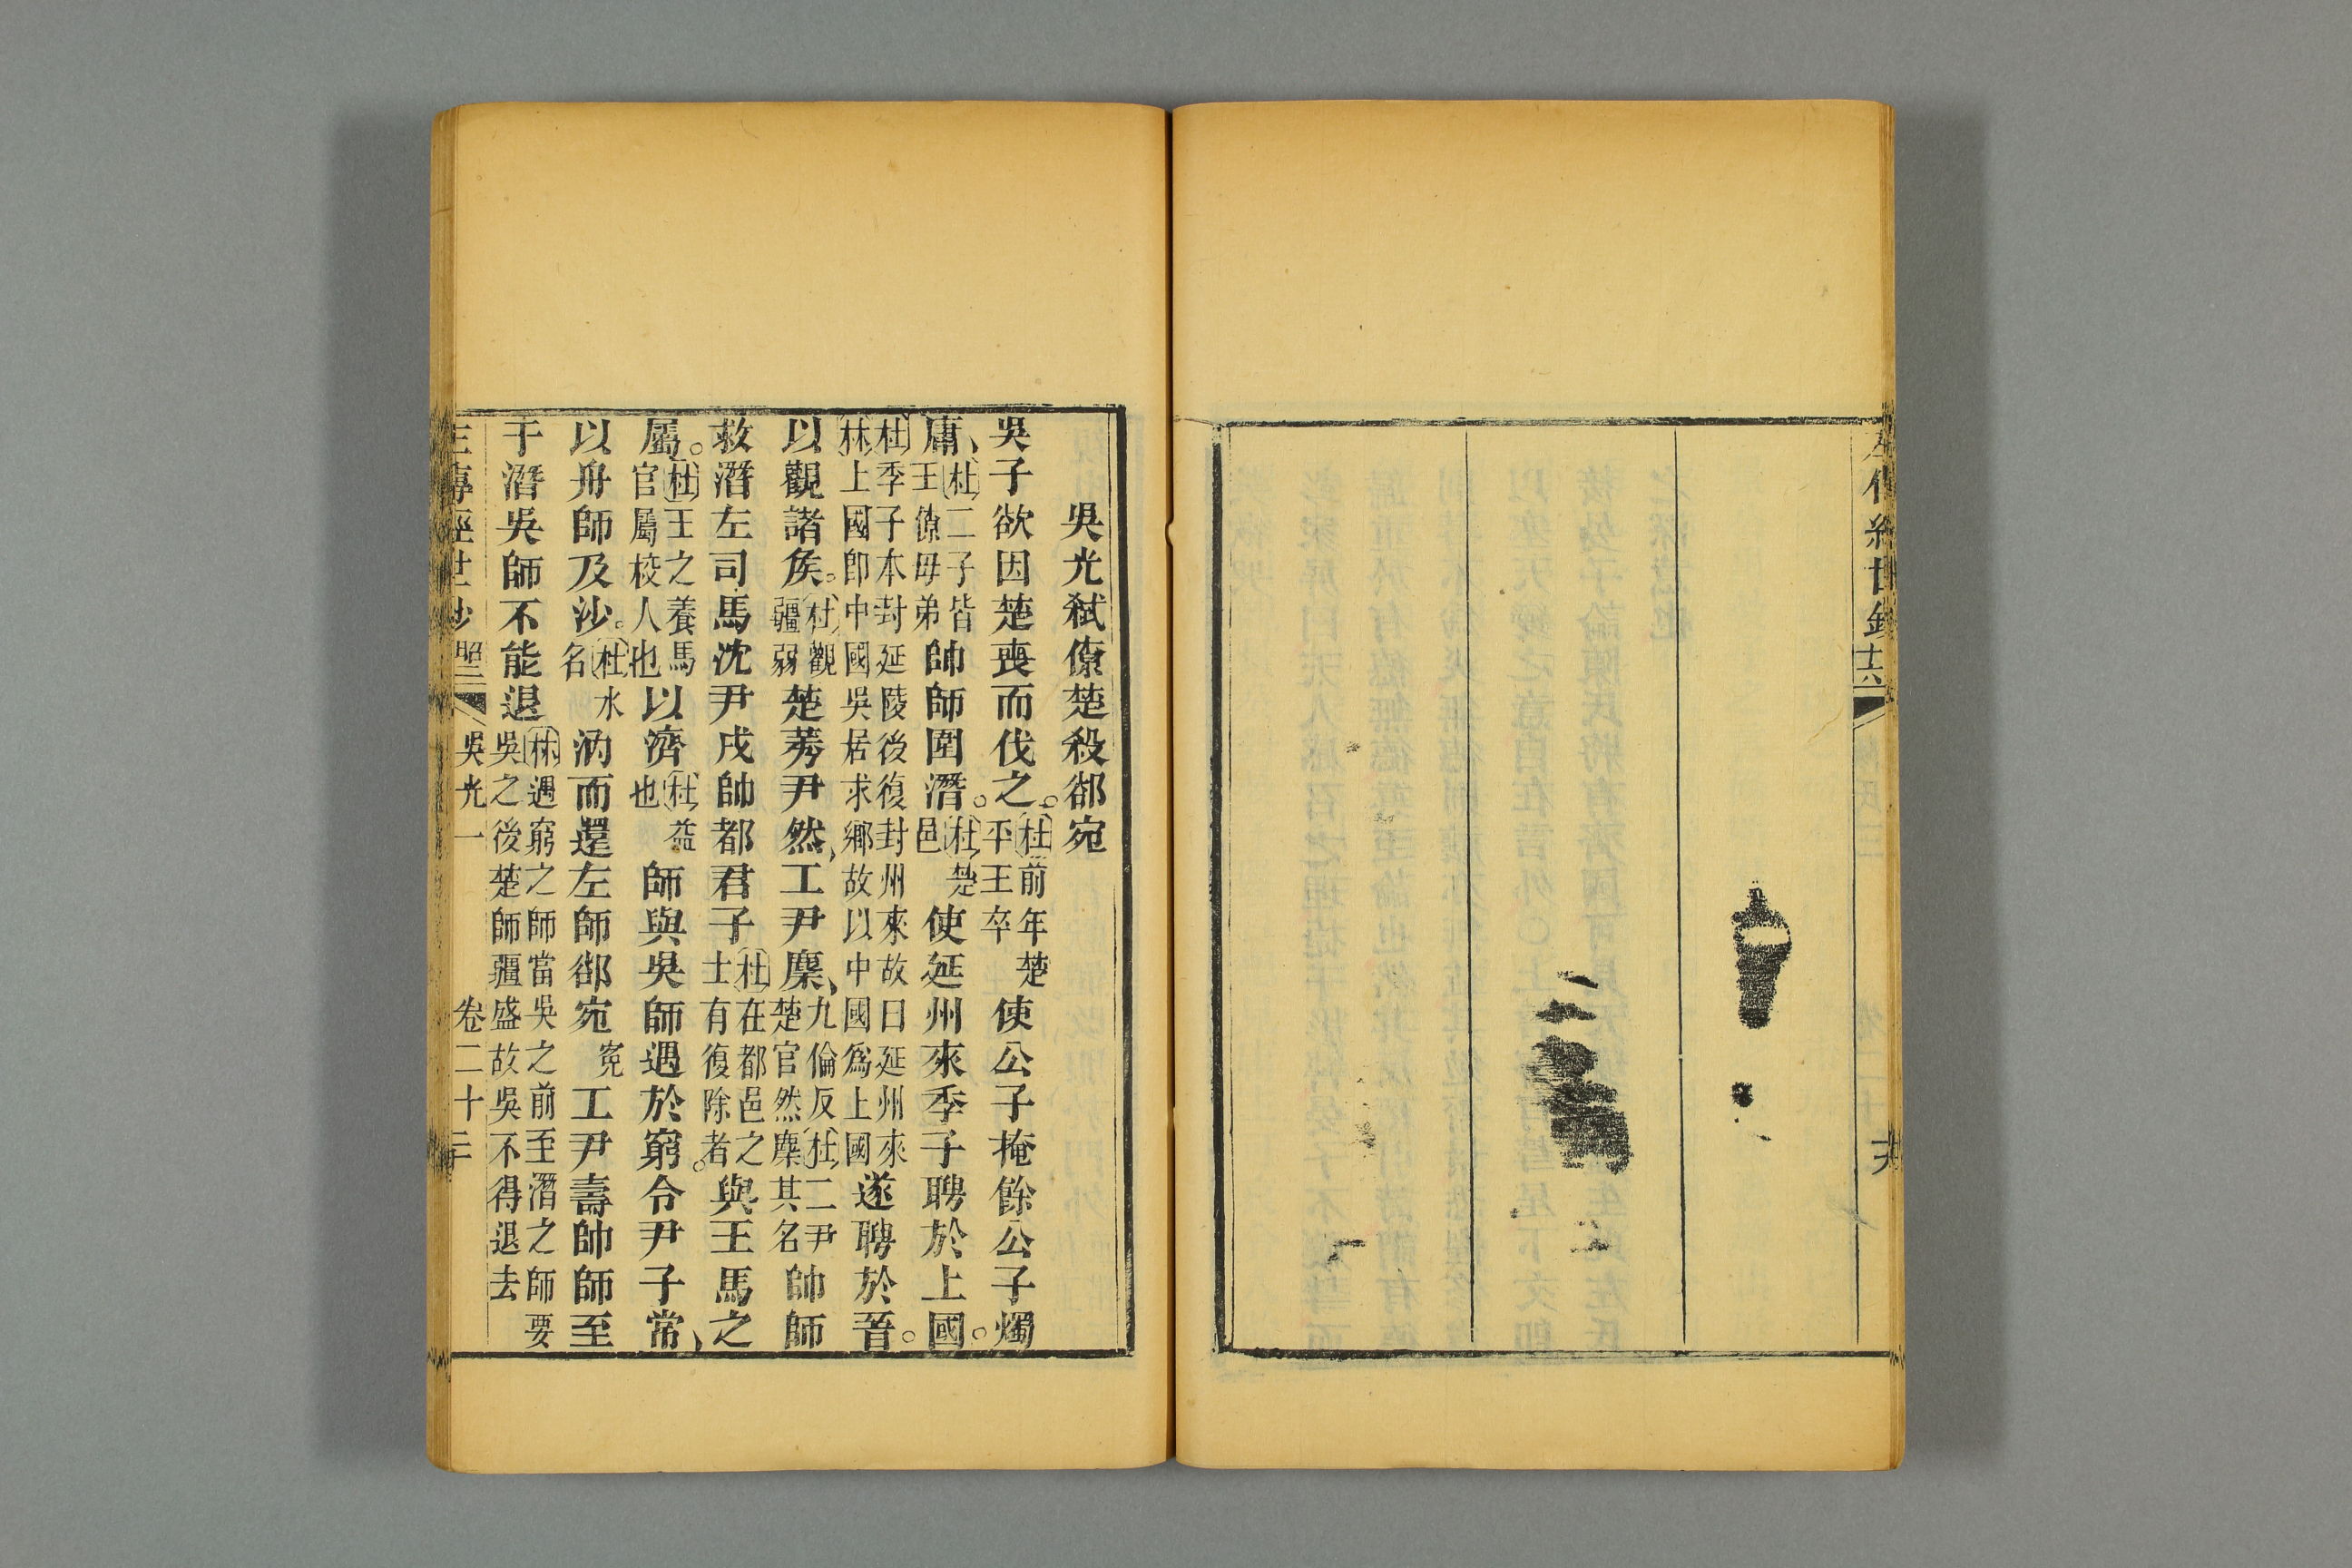 左傳經世鈔
吳光弒僚楚殺郤宛
吳子欲因楚喪而伐之。杜前年楚平王卒使公子掩餘公子燭
庸、杜二子皆王僚毋弟帥師圍潛。杜楚邑使延州來季子聘於上國。
杜季子本封延陵後復封州來故曰延州來林上國卽中國吳居求鄉故以中國爲上國遂聘於晉。
以觀諸侯。杜觀疆弱楚莠尹然、工尹麇、九倫反杜二尹楚官然麇其名帥師
救潛左司馬沈尹戌帥都君子杜在都邑之士有復除者。與王馬之
屬。杜王之養馬官屬校人也以濟杜益也師與吳師遇於窮。令尹子常、
以舟師及沙。杜水名汭而還左師郤宛寃工尹壽帥師至
于潛吳師不能退林遇窮之師當吳之前至潛之師要吳之後楚師疆盛故吳不得退去
左傳經世鈔 昭二 吳光一 卷二十三